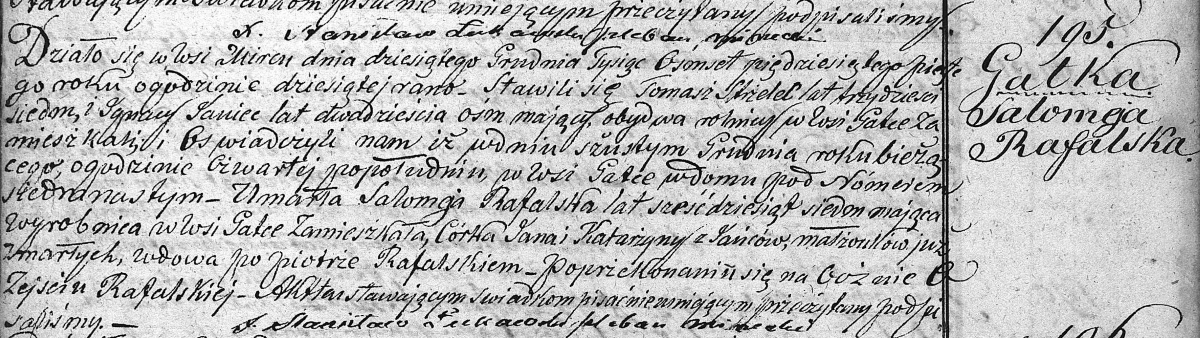 Stawającym Świadkom pisać nie umiejącym przeczytany podpisaliśmy.
X. Stanisław pleban
Działo się w Wsi Mircu dnia dziesiątego Grudnia Tysiąc Osmset pięćdziesiątego piąte
go roku o godzinie dziesiątej rano. Stawili się Tomasz Strzelec lat trzydzieści
siedm, i Ignacy Janiec lat dwadzieścia ośm mający, obydwa rolnicy w Wsi Gatce Za
mieszkali, i Oświadczyli nam iż w dniu szustym Grudnia roku bieżą
cego, o godzinie Czwartej popołudniu, w Wsi Gatce w domu pod Nómerem
siedmnastym – Umarła Salomga Rafalska lat sześćdziesiąt siedm mająca
wyrobnica w Wsi Gatce Zamieszkała, Córka Jana i Katarzyny z Jańców, małżonków już
Zmarłych, wdowa po piotrze Rafalskiem – po przekonaniu się naócznie O
Zejściu Rafalskiej – Akt ten stawającym swiadkom pisać nieumiejącym przeczytany podpi
saliśmy. – X. Stanisław pleban
195.
Gatka
Salomga
Rafalska.
196